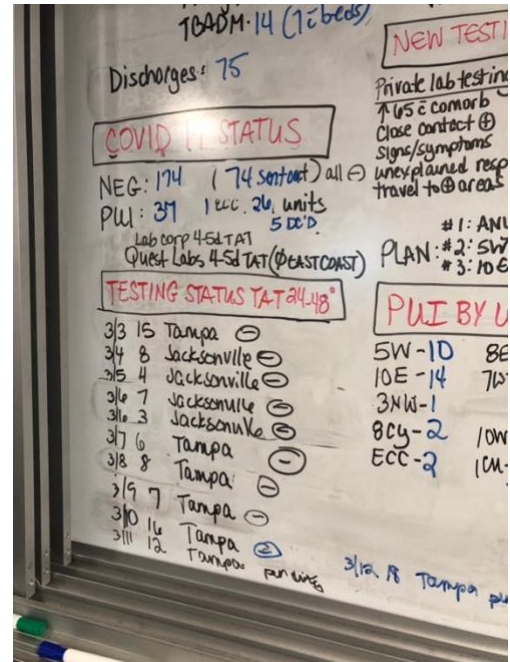 TBADM· 14 (7 c̄ beds)
Discharges: 75
COVID STATUS
NEG: 174 (74 sent out) all ⊖
PUI: 37 1 ecc. 26, units
5 DC'D
Lab corp 4-5d TAT
Quest Labs 4-5d TAT (∅ EAST COAST)
TESTING STATUS TAT 24-48°
3/3 15 Tampa ⊖
3/4 8 Jacksonville ⊖
3/5 4 Jacksonville ⊖
3/6 7 Jacksonville ⊖
3/6 3 Jacksonville ⊖
3/7 6 Tampa ⊖
3/8 8 Tampa ⊖
3/9 7 Tampa ⊖
3/10 16 Tampa
3/11 12 Tampa pending
3/12 18 Tampa
NEW TESTI
Private lab testing
↑ 65 c̄ comorb
Close contact ⊕
Signs/symptoms
unexplained resp
travel to ⊕ areas
PLAN: #1: ANU
#2: 5W
#3: 10E
PUI BY U
5W-10 8E
10E-14 7W
3NW-1
8CY-2 10W
ECC-2 1CU-